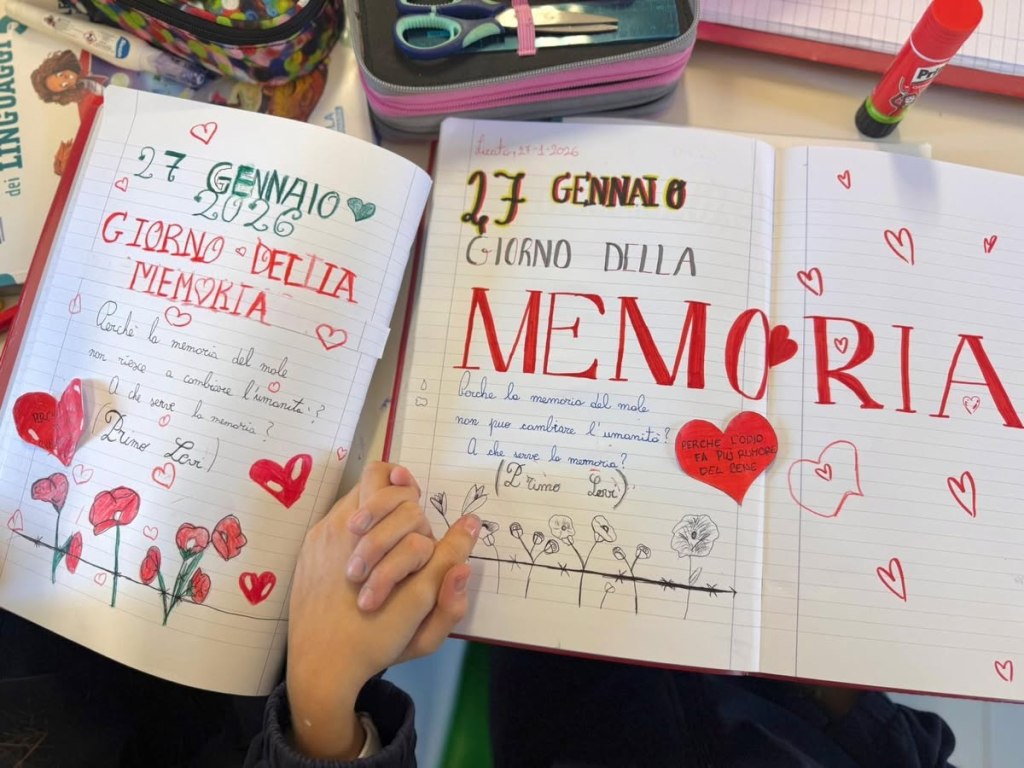 dei LINGUAGGI 3
27 GENNAIO
2026
GIORNO DELLA
MEMORIA
Perché la memoria del male
non riesce a cambiare l'umanità?
A che serve la memoria?
(Primo Levi)
27-1-2026
27 GENNAIO
GIORNO DELLA
MEMORIA
Perche la memoria del male
non può cambiare l'umanità?
A che serve la memoria?
(Primo Levi)
PERCHE L'ODIO
FA PIÙ RUMORE
DEL BENE
Pri